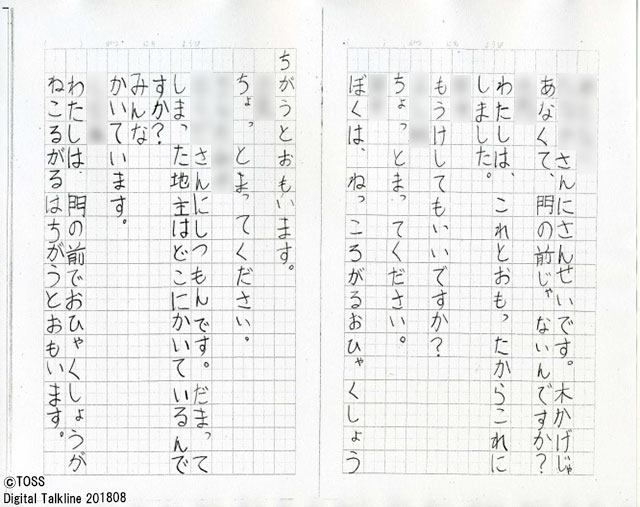 さんにさんせいです。木かげじゃ
あなくて、門の前じゃないんですか?
わたしは、これとおもったからこれに
しました。
もうけしてもいいですか?
ちょっとまってください。
ぼくは、ねっころがるおひゃくしょう
ちがうとおもいます。
ちょっとまってください。
さんにしつもんです。だまって
しまった地主はどこにかいているんで
すか?
みんな
かいています。
わたしは、門の前でおひゃくしょうが
ねころがるはちがうとおもいます。
©TOSS
Digital Talkline 201808